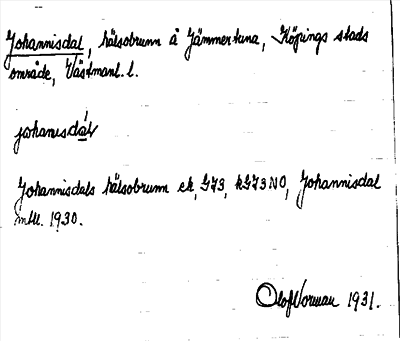 Johannisdal, hälsobrunn å Jämmertuna, Köpings stads
område, Västmanl. l.
johanısdáł
Johannisdals hälsobrunn ek, G73, kG73NO, Johannisdal
mtll. 1930.
Olof Vorman 1931.